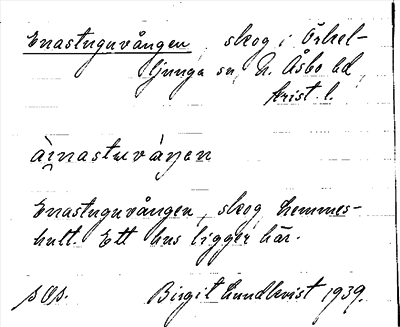 Enastuguvången, skog i Örkel-
ljunga sn, N. Åsbo hd
Krist. l.
Enastuguvången, skog Hemmes-
hult. Ett hus ligger här.
Birgit Lundkvist 1939.